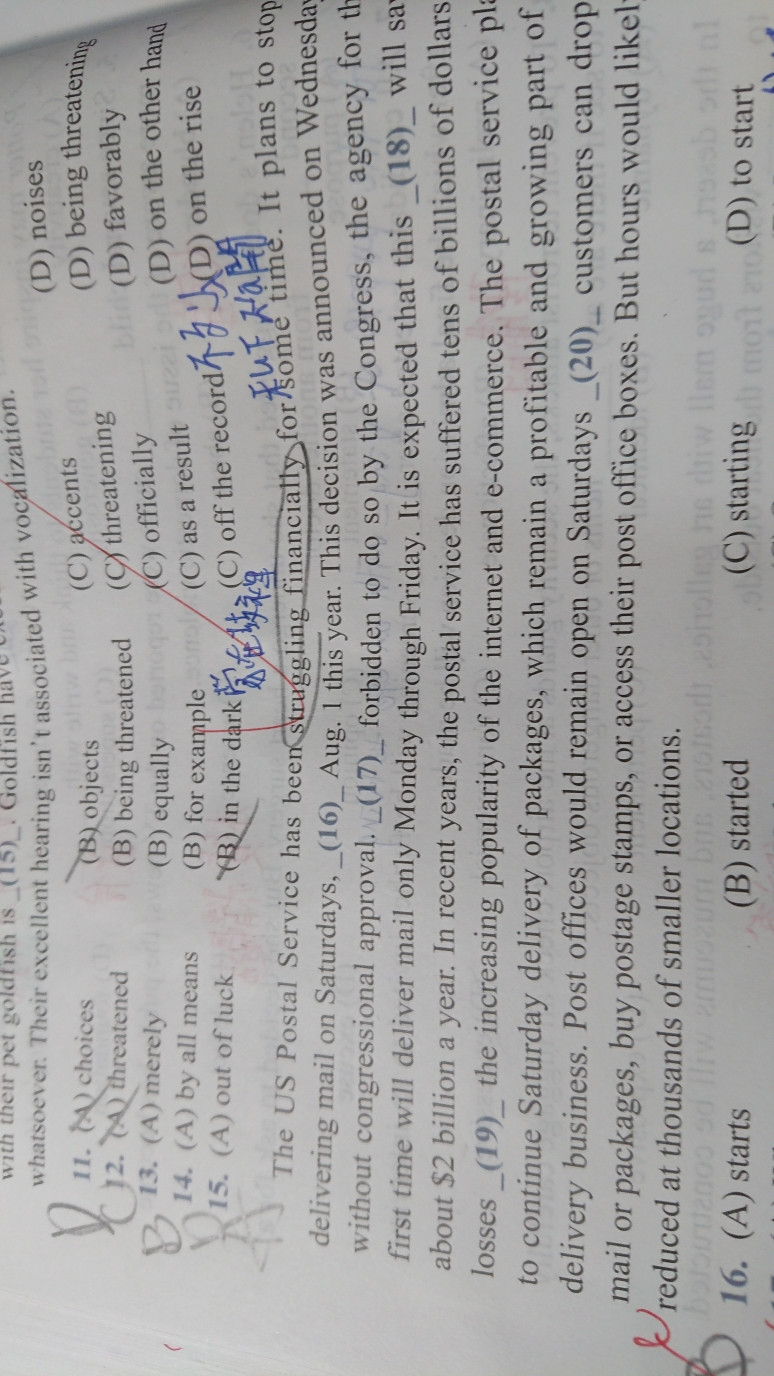 with their pet goldfish is _(15)_. Goldfish have
whatsoever. Their excellent hearing isn't associated with vocalization.
D 11. (A) choices (B) objects (C) accents (D) noises
C 12. (A) threatened (B) being threatened (C) threatening (D) being threatening
B 13. (A) merely (B) equally (C) officially (D) favorably
D 14. (A) by all means (B) for example (C) as a result (D) on the other hand
A 15. (A) out of luck (B) in the dark (C) off the record (D) on the rise
The US Postal Service has been struggling financially for some time. It plans to stop
delivering mail on Saturdays, _(16)_ Aug. 1 this year. This decision was announced on Wednesday
without congressional approval. _(17)_ forbidden to do so by the Congress, the agency for th
first time will deliver mail only Monday through Friday. It is expected that this _(18)_ will sa
about $2 billion a year. In recent years, the postal service has suffered tens of billions of dollars
losses _(19)_ the increasing popularity of the internet and e-commerce. The postal service pla
to continue Saturday delivery of packages, which remain a profitable and growing part of
delivery business. Post offices would remain open on Saturdays _(20)_ customers can drop
mail or packages, buy postage stamps, or access their post office boxes. But hours would likel
reduced at thousands of smaller locations.
D 16. (A) starts (B) started (C) starting (D) to start